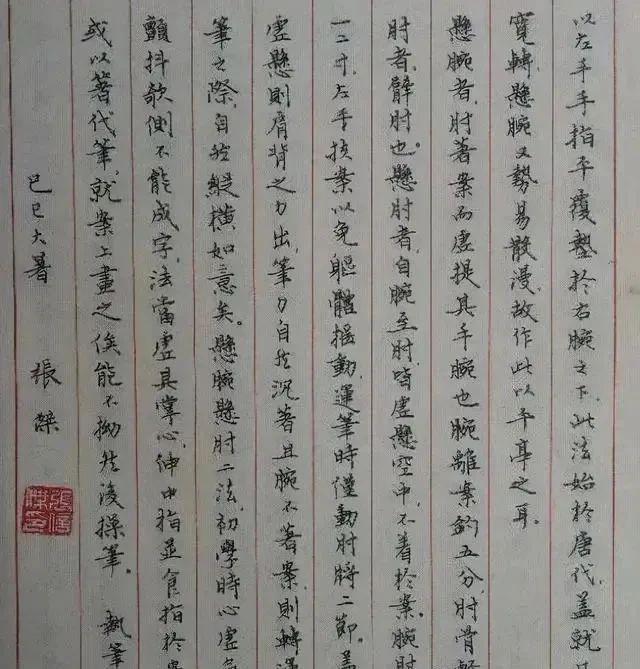 以左手手指平覆墊於右腕之下，此法始於唐代，蓋就
寬轉懸腕又勢易散漫，故作此以平亭之耳。
懸腕者，肘著案而虛提其手腕也，腕離案約五分，肘骨輕
肘者，臂肘也。懸肘者，自腕至肘，皆虛懸空中，不着於案。腕肘
一二寸，左手扶案以免軀體搖動，運筆時僅動肘將二節。蓋
虛懸則肩背之力出，筆力自然沉著且腕不著案，則轉運
筆之際，自然縱橫如意矣。懸腕懸肘二法，初學時心虛
顫抖欹側不能成字，法當虛其掌心，伸中指並食指於
或以箸代筆，就案上畫之俟能不拗然後操筆。 執筆
己巳大暑 張傑
張傑印